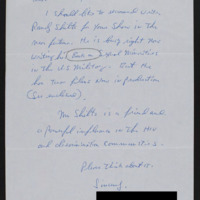 I should like to recommend
Randy Shilts for your Show in the
near future. He is busy right now
writing his book on Sexual Minorities
in the US Military. But he
has two films now in production
(see enclosed).
Mr Shilts is a friend and
a powerful influence in the
and communities.
Please think about it.
Sincerely,